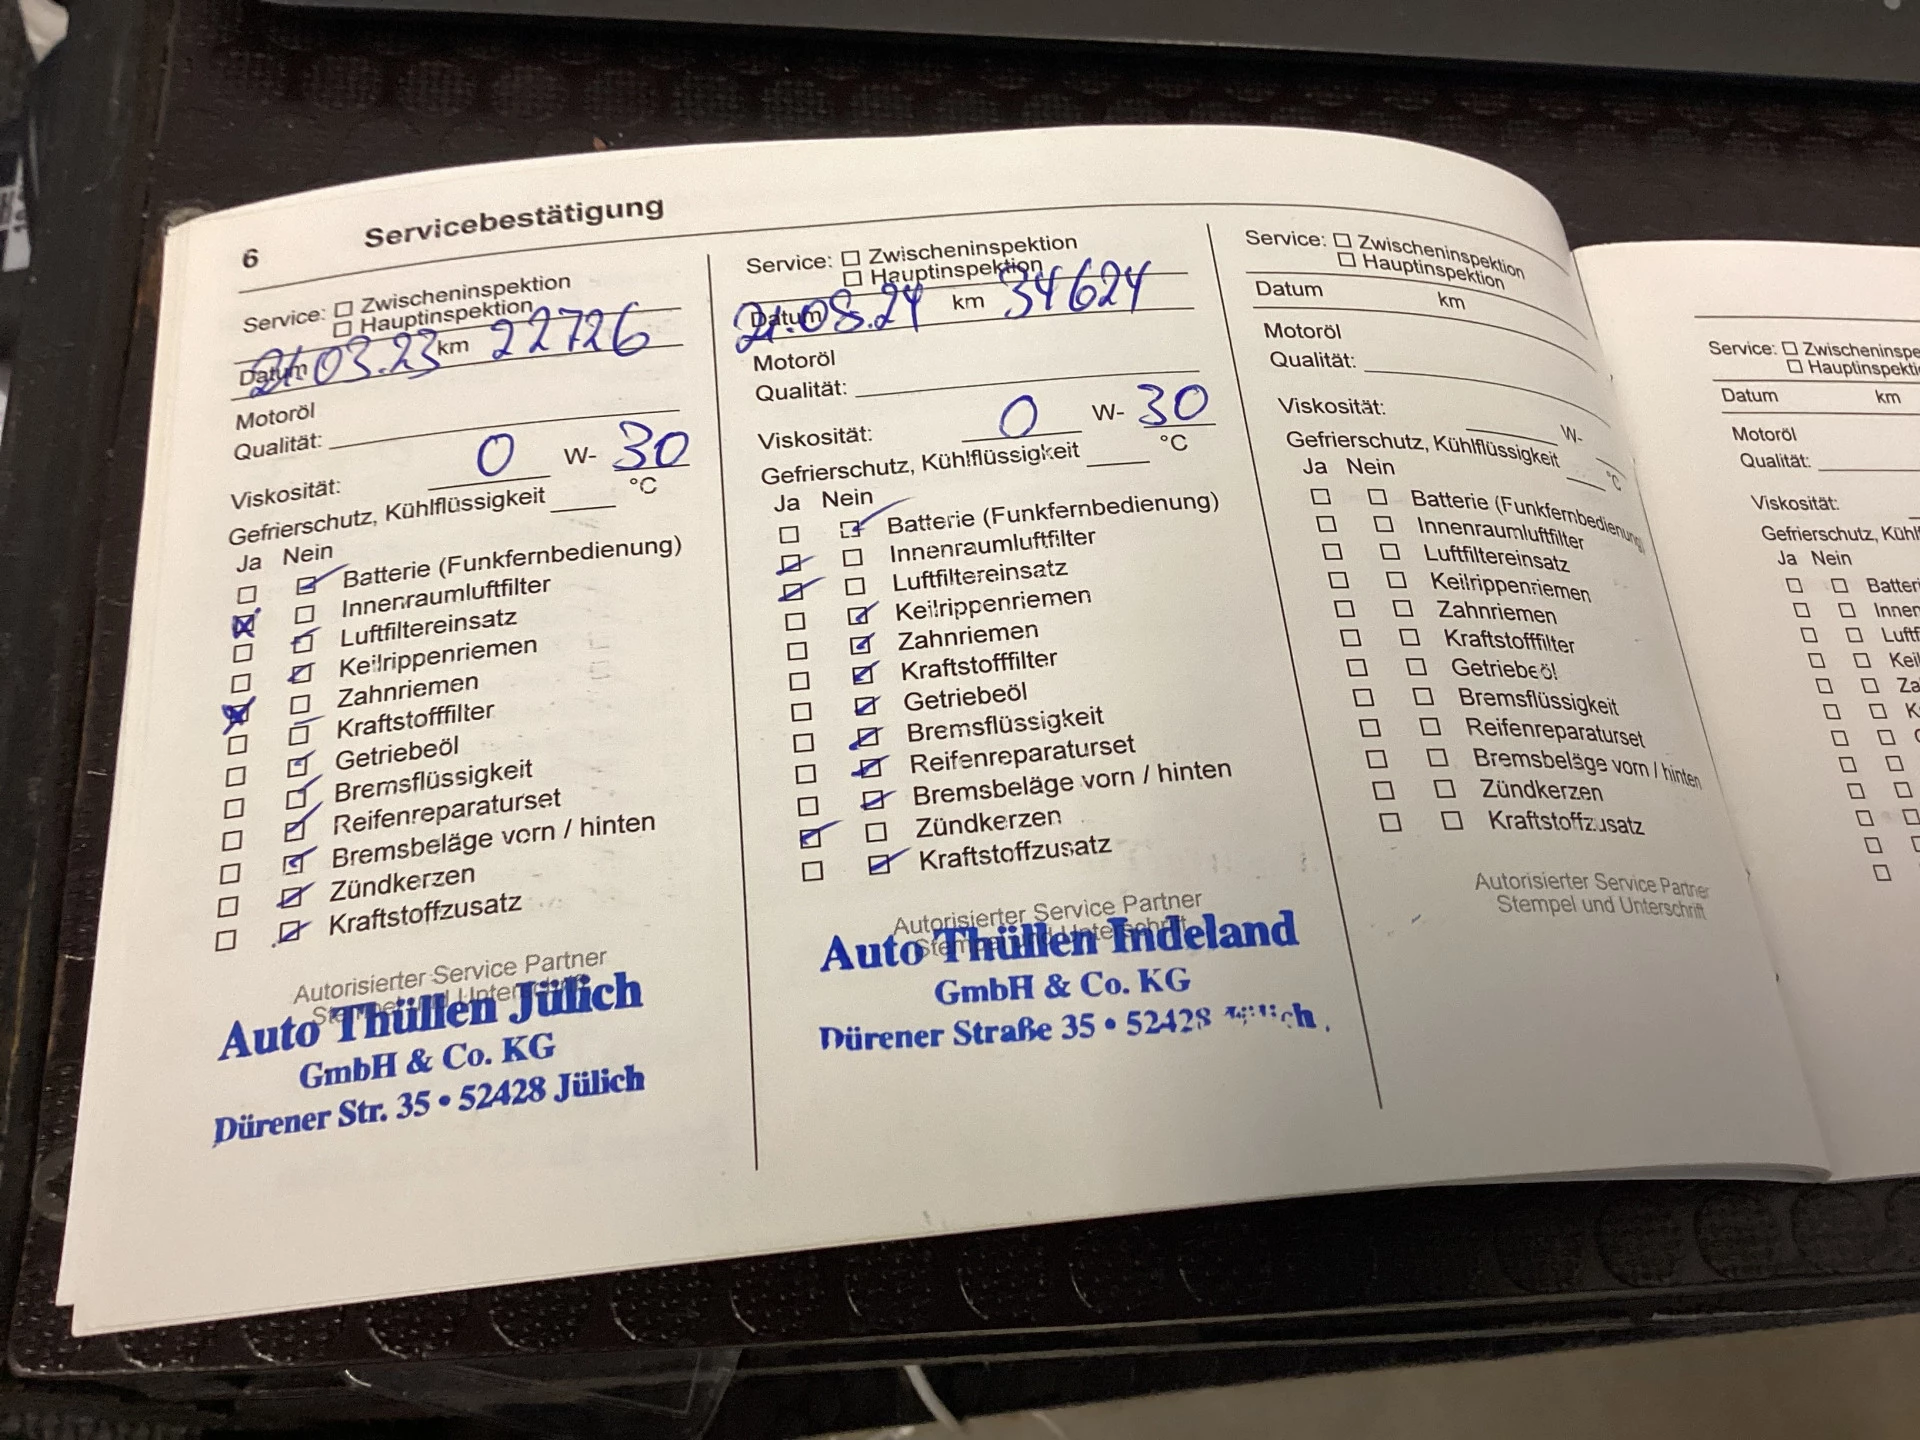 6 Servicebestätigung
Service: ☐ Zwischeninspektion
☐ Hauptinspektion
Datum 21.03.23 km 22726
Motoröl
Qualität:
Viskosität: 0 W- 30
Gefrierschutz, Kühlflüssigkeit °C
Ja Nein
Batterie (Funkfernbedienung)
Innenraumluftfilter
Luftfiltereinsatz
Keilrippenriemen
Zahnriemen
Kraftstofffilter
Getriebeöl
Bremsflüssigkeit
Reifenreparaturset
Bremsbeläge vorn / hinten
Zündkerzen
Kraftstoffzusatz
Autorisierter Service Partner
Stempel und Unterschrift
Auto Thüllen Jülich
GmbH & Co. KG
Dürener Str. 35 • 52428 Jülich
Service: ☐ Zwischeninspektion
☐ Hauptinspektion
Datum 21.08.24 km 34624
Motoröl
Qualität:
Viskosität: 0 W- 30
Gefrierschutz, Kühlflüssigkeit °C
Ja Nein
Batterie (Funkfernbedienung)
Innenraumluftfilter
Luftfiltereinsatz
Keilrippenriemen
Zahnriemen
Kraftstofffilter
Getriebeöl
Bremsflüssigkeit
Reifenreparaturset
Bremsbeläge vorn / hinten
Zündkerzen
Kraftstoffzusatz
Autorisierter Service Partner
Stempel und Unterschrift
Auto Thüllen Indeland
GmbH & Co. KG
Dürener Straße 35 • 52428 Jülich
Service: ☐ Zwischeninspektion
☐ Hauptinspektion
Datum km
Motoröl
Qualität:
Viskosität: W-
Gefrierschutz, Kühlflüssigkeit °C
Ja Nein
Batterie (Funkfernbedienung)
Innenraumluftfilter
Luftfiltereinsatz
Keilrippenriemen
Zahnriemen
Kraftstofffilter
Getriebeöl
Bremsflüssigkeit
Reifenreparaturset
Bremsbeläge vorn / hinten
Zündkerzen
Kraftstoffzusatz
Autorisierter Service Partner
Stempel und Unterschrift
Service: ☐ Zwischeninspe
☐ Hauptinspekti
Datum km
Motoröl
Qualität:
Viskosität:
Gefrierschutz, Kühlf
Ja Nein
Batteri
Innen
Luftf
Keil
Za
K